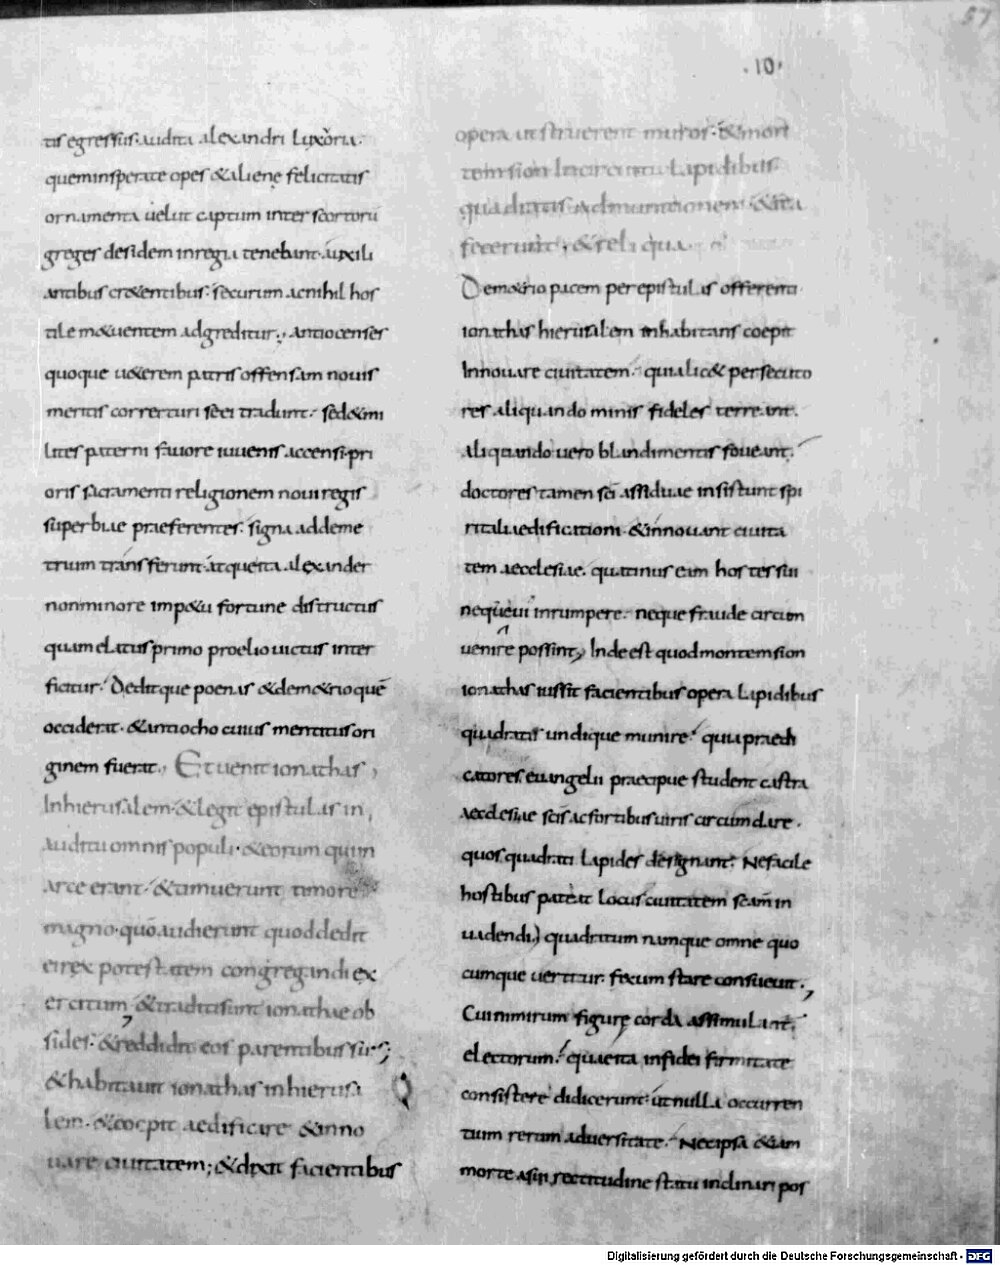 57
·10·
tis egressus. audita alexandri luxoria.
quem insperate opes & aliene felicitatis
ornamenta uelut captum inter scortorū
greges desidem in regia tenebant. auxili
antibus cr&entibus. securum ac nihil hos
tile m&uentem adgreditur; antiocenses
quoque u&erem patris offensam nouis
meritis correcturi se ei tradunt. sed & mi
lites paterni fauore iuuenis accensi. pri
oris sacramenti religionem noui regis
superbiae praeferentes. signa ad deme
trium transferunt. atque ita alexander
non minore imp&u fortune distructus
quam elatus primo proelio uictus inter
ficitur. Deditque poenas & dem&rio quē
occiderat. & antiocho cuius mentitus ori
ginem fuerat, Et uenit ionathas,
In hierusalem. & legit epistulas in,
auditu omnis populi. & eorum qui in
arce erant. & timuerunt timore
magno. quō audierunt quod dedit
ei rex potestatem congregandi ex
ercitum, & traditi sunt ionathae ob
sides. & reddidit eos parentibus suis;
& habitauit ionathas in hierusa
lem. & coepit aedificare & inno
uare ciuitatem; & dixit facientibus
opera ut struerent muros. & mon
tem sion in circuitu lapidibus
quadratis ad munitionem. & ita
fecerunt, & reliqua
Dem&rio pacem per epistulas offerenti
ionathas hierusalem inhabitans coepit
Innouare ciuitatem. quia lic& persecuto
res aliquando minis fideles terreant.
Aliquando uero blandimentis foueant.
doctores tamen sci assiduae insistunt spi
ritali aedificationi. & innouant ciuita
tem aecclesiae. quatinus eam hostes sui
neque ui inrumpere. neque fraude circum
uenire possint, Inde est quod montem sion
ionathas iussit facientibus opera lapidibus
quadratis undique munire. quia praedi
catores euangelii praecipue student castra
aecclesiae scis ac fortibus uiris circumdare.
quos quadrati lapides designant. Ne facile
hostibus pateat locus ciuitatem scām in
uadendi) quadratum namque omne quo
cumque uertitur. fixum stare consueuit.,
Cui nimirum figure corda assimulant.
electorum. quae ita in fidei firmitate
consistere didicerunt. ut nulla occurren
tium rerum aduersitate. Nec ipsa &iam
morte a sui rectitudine status inclinari pos
Digitalisierung gefördert durch die Deutsche Forschungsgemeinschaft - DFG